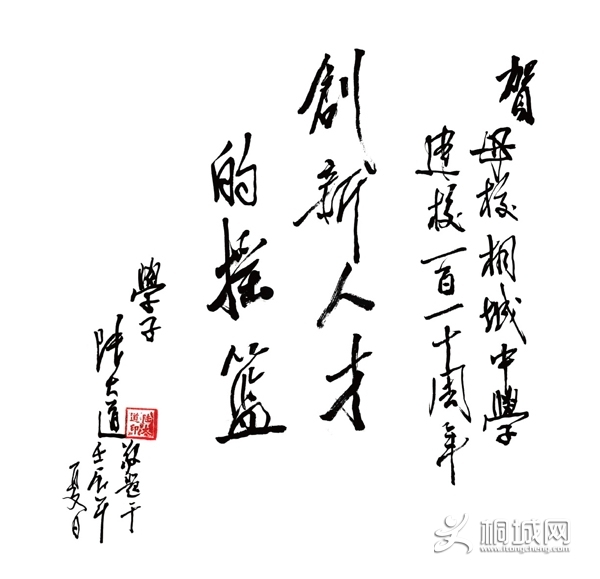 賀
母校桐城中學
建校一百一十周年
創新人才
的摇篮
學子
陆大道
敬题于
壬辰年
夏日
桐城网
www.itongcheng.com